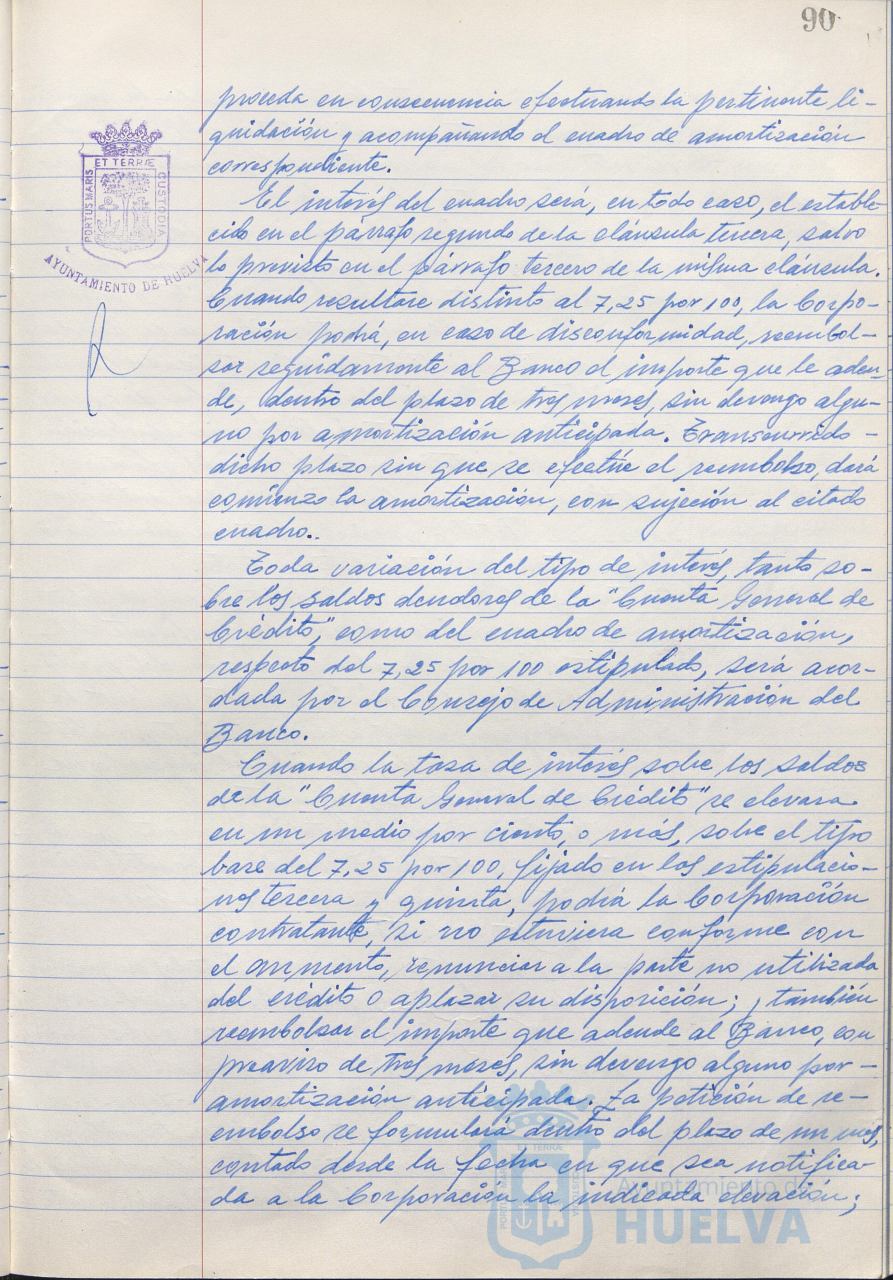 90
proceda en consecuencia efectuando la pertinente li-
quidación y acompañando el cuadro de amortización
correspondiente.
El interés del cuadro será, en todo caso, el estable-
cido en el párrafo segundo de la cláusula tercera, salvo
lo previsto en el párrafo tercero de la misma cláusula.
Cuando resultare distinto al 7,25 por 100, la Corpo-
ración podrá, en caso de disconformidad, reembol-
sar seguidamente al Banco el importe que le adeu-
de, dentro del plazo de tres meses, sin devengo algu-
no por amortización anticipada. Transcurrido-
dicho plazo sin que se efectúe el reembolso, dará
comienzo la amortización, con sujeción al citado
cuadro..
Toda variación del tipo de interés, tanto so-
bre los saldos deudores de la "Cuenta General de
Crédito", como del cuadro de amortización,
respecto del 7,25 por 100 estipulado, será acor-
dada por el Consejo de Administración del
Banco.
Cuando la tasa de interés sobre los saldos
de la "Cuenta General de Crédito" se elevara
en un medio por ciento, o más, sobre el tipo
base del 7,25 por 100, fijado en las estipulacio-
nes tercera y quinta, podrá la Corporación
contratante, si no estuviera conforme con
el aumento, renunciar a la parte no utilizada
del crédito o aplazar su disposición; y también
reembolsar el importe que adeude al Banco, con
preaviso de tres meses, sin devengo alguno por-
amortización anticipada. La petición de re-
embolso se formulará dentro del plazo de un mes,
contado desde la fecha en que sea notifica-
da a la Corporación la indicada elevación;
PORTUS MARIS ET TERRÆ CUSTODIA
AYUNTAMIENTO DE HUELVA
Ayuntamiento de
HUELVA